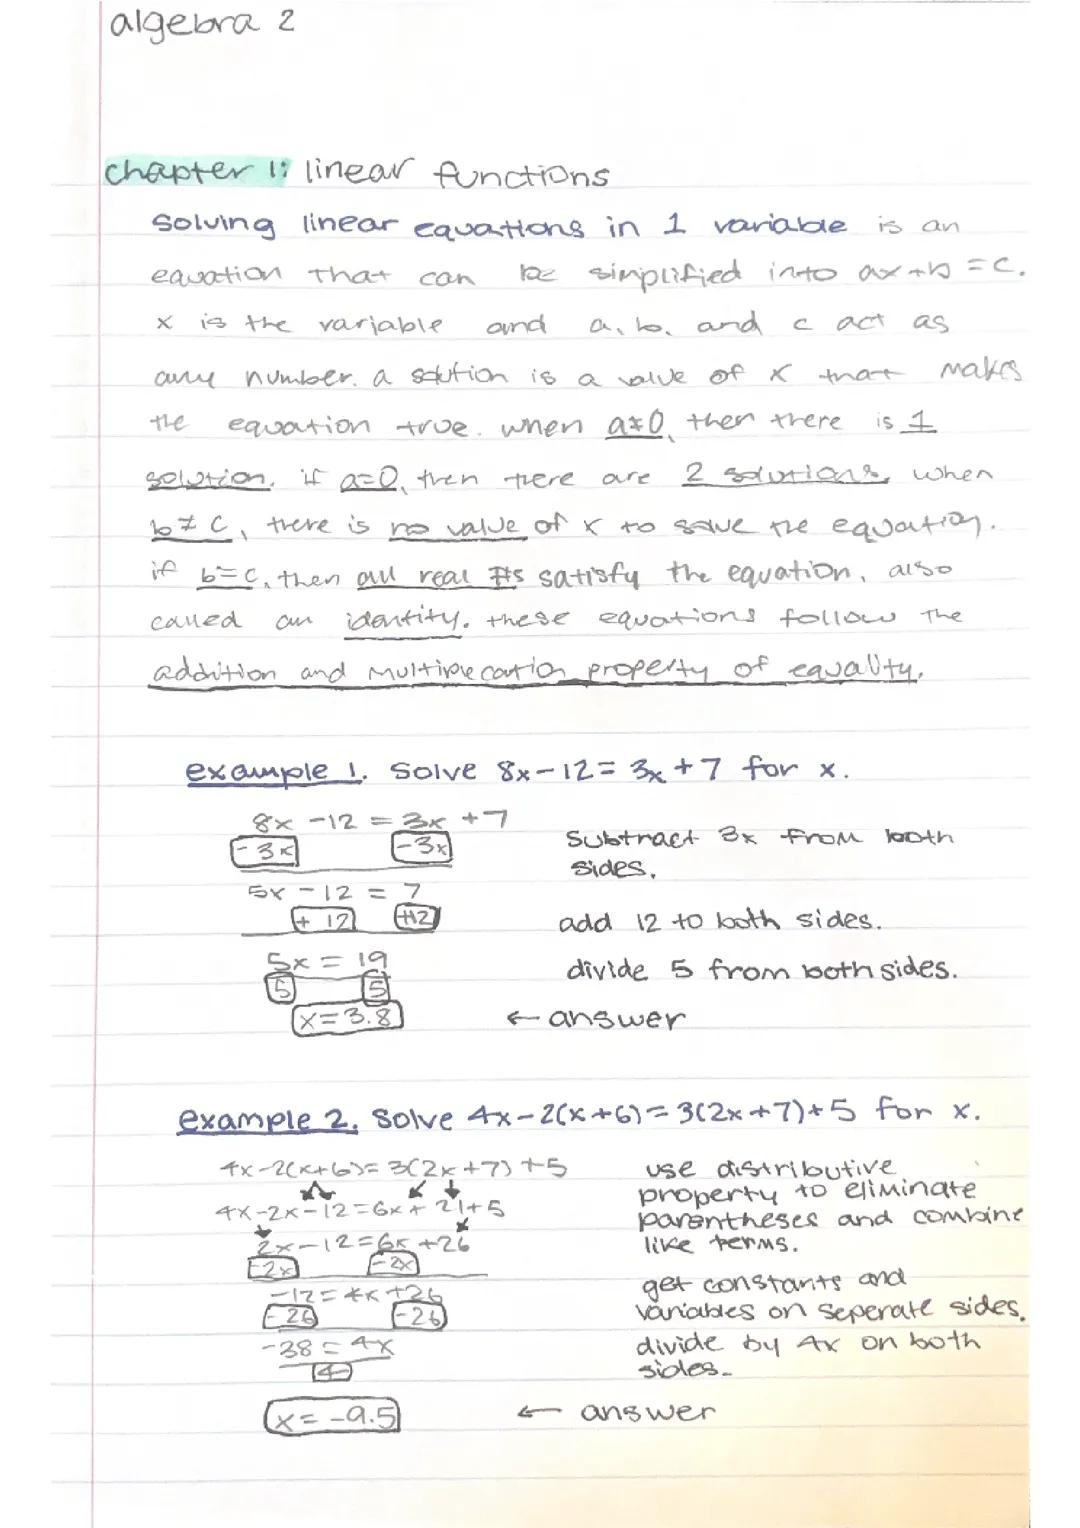 algebra 2
chapter 1: linear functions
solving linear equations in 1 variable is an
equation that can be simplified into ax+b=c.
x is the variable and a, b, and c act as
any number. a solution is a value of x that makes
the equation true. when a≠0, then there is 1
solution. if a=0, then there are 2 solutions, when
b≠c, there is no value of x to solve the equation.
if b=c, then all real #s satisfy the equation, also
called an identity. these equations follow the
addition and multiplecation property of equality.
example 1. solve 8x-12=3x+7 for x.
8x -12 = 3x +7
-3x -3x
subtract 3x from both
sides.
5x - 12 = 7
+ 12 +12
add 12 to both sides.
5x = 19
5 5
divide 5 from both sides.
x=3.8 ← answer
example 2. solve 4x-2(x+6)=3(2x+7)+5 for x.
4x-2(x+6)=3(2x+7)+5
4x-2x-12=6x+21+5
2x-12=6x+26
-2x -2x
use distributive
property to eliminate
parentheses and combine
like terms.
-12=4x+26
-26 -26
get constants and
variables on seperate sides.
-38=4x
4
divide by 4x on both
sides.
x=-9.5 ← answer